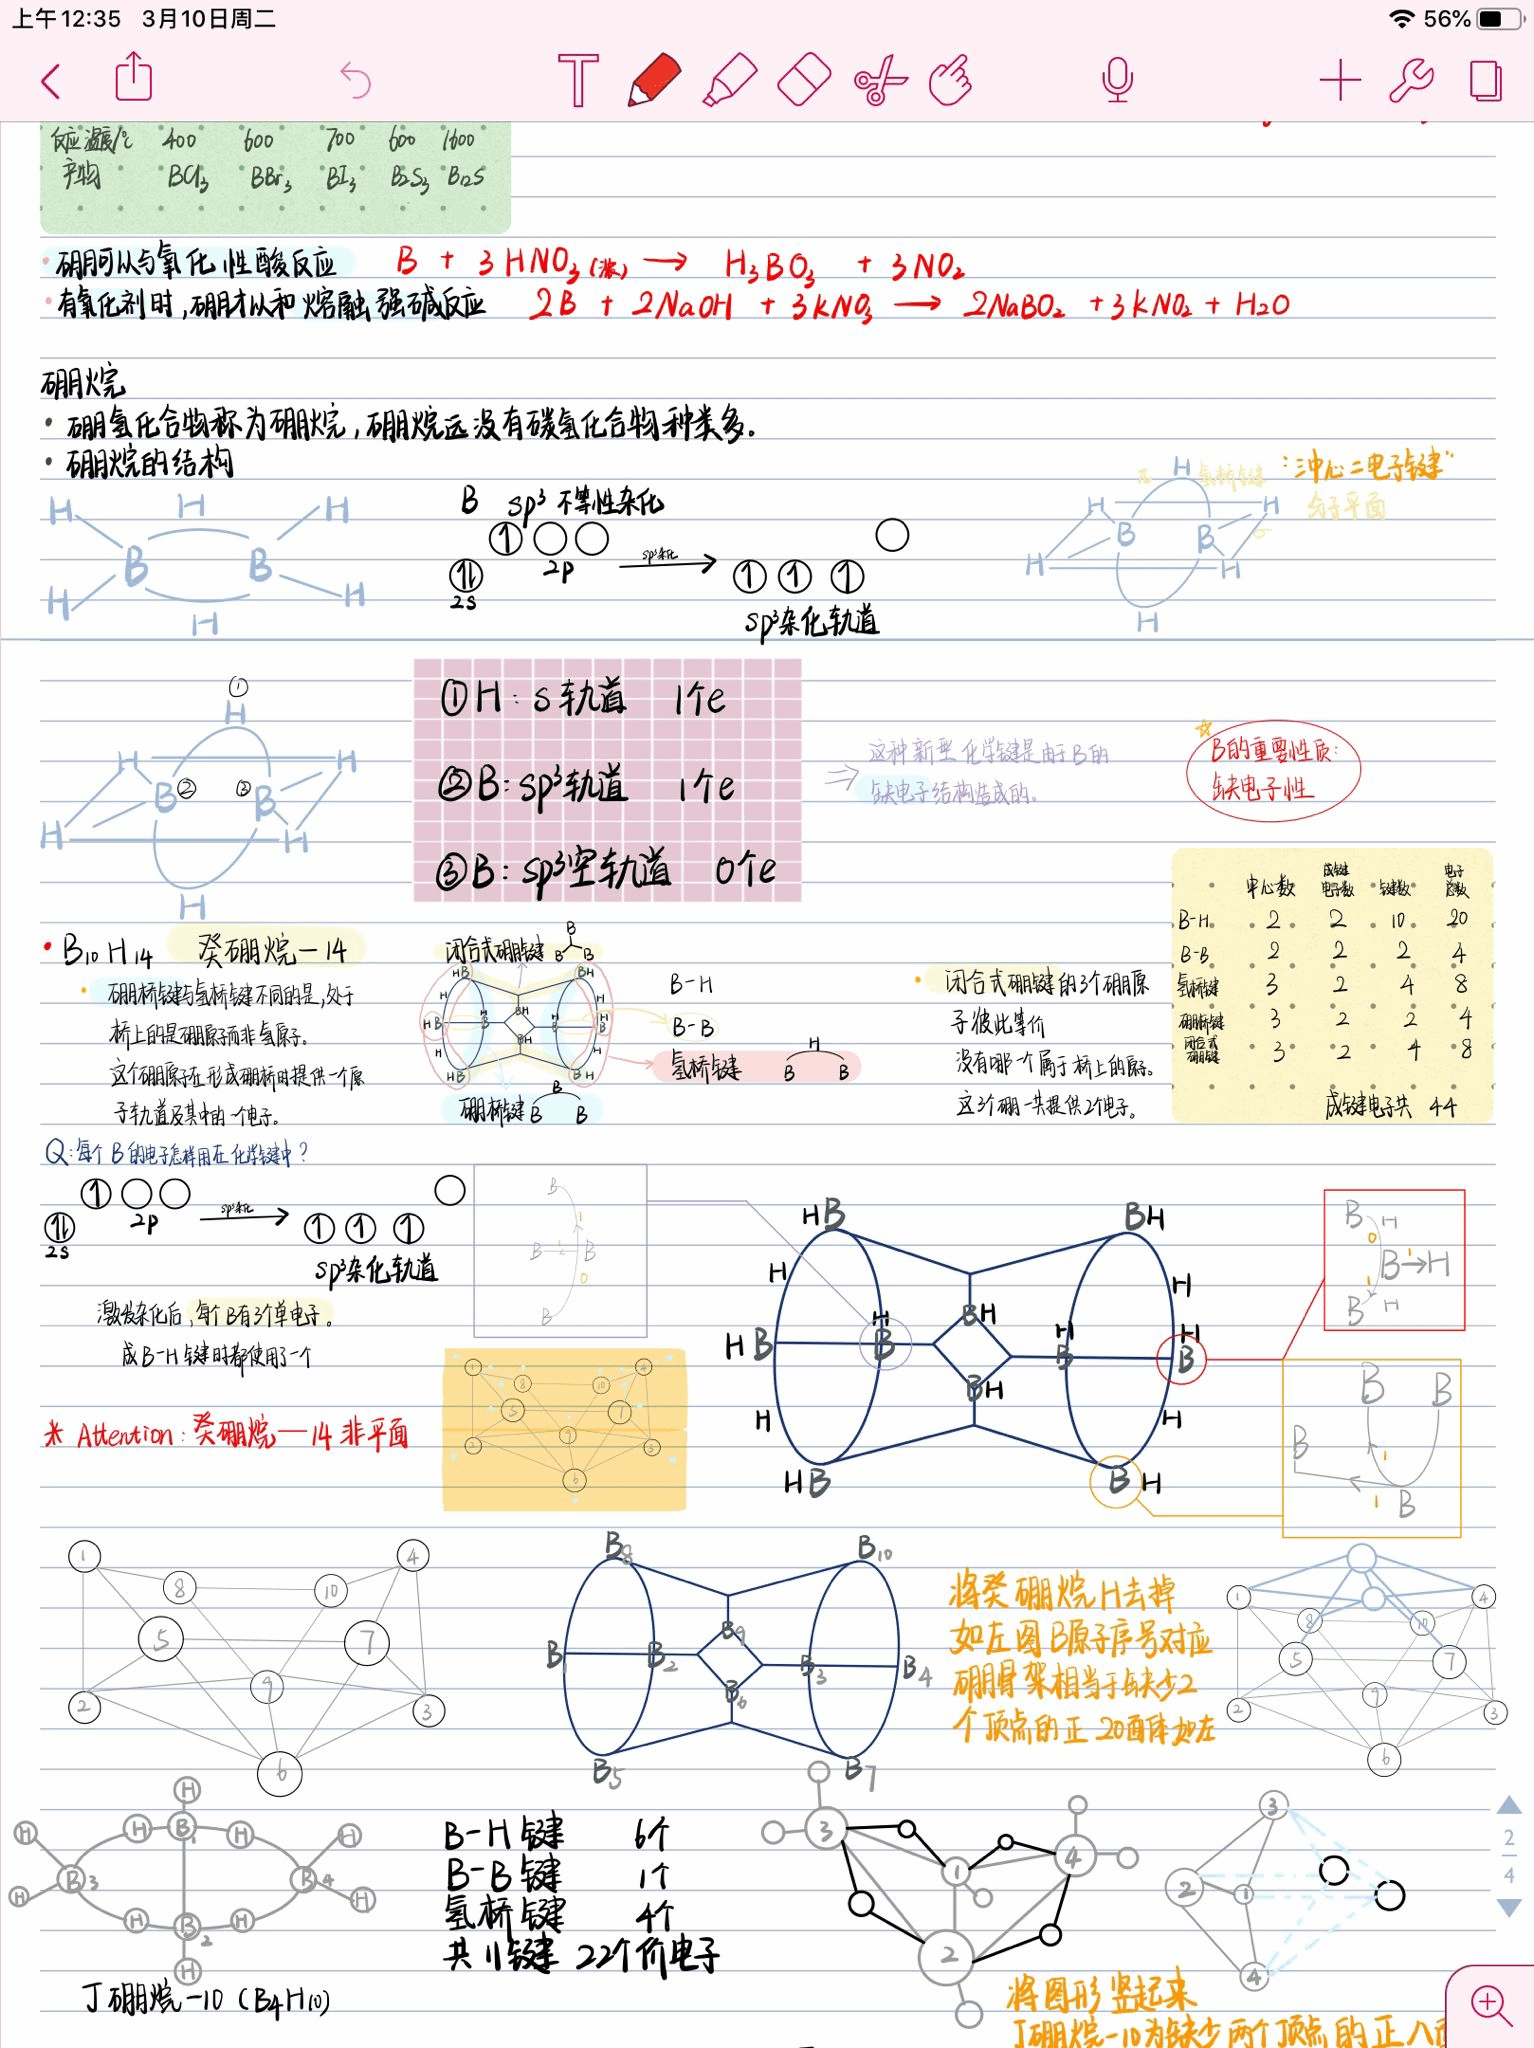 上午12:35 3月10日周二
56%
反应温度/℃ 400 600 700 600 1600
产物 BCl₃ BBr₃ BI₃ B₂S₃ B₁₂S
硼可以与氧化性酸反应 B + 3HNO₃(浓) → H₃BO₃ + 3NO₂
有氧化剂时,硼才以和熔融强碱反应 2B + 2NaOH + 3KNO₃ → 2NaBO₂ + 3KNO₂ + H₂O
硼烷
· 硼氢化合物称为硼烷,硼烷远没有碳氢化合物种类多.
· 硼烷的结构
B sp³不等性杂化
2s 2p sp³杂化 sp³杂化轨道
H H H H H H B B
氢桥键 "三中心二电子键"
分子平面
H H H H H H B B
① H H H H H H B② ③B
①H: s轨道 1个e
②B: sp³轨道 1个e
③B: sp³空轨道 0个e
⇒ 这种新型化学键是由于B的
缺电子结构造成的。
☆ B的重要性质:
缺电子性
中心数 成键电子数 键数 电子总数
B-H 2 2 10 20
B-B 2 2 2 4
氢桥键 3 2 4 8
硼桥键 3 2 2 4
闭合式硼键 3 2 4 8
成键电子共 44
· B₁₀H₁₄ 癸硼烷-14
硼桥键与氢桥键不同的是,处于
桥上的是硼原子而非氢原子。
这个硼原子在形成硼桥时提供一个原
子轨道及其中的一个电子。
闭合式硼键 B B B
B-H
B-B
氢桥键 B H B
硼桥键 B B B
闭合式硼键的3个硼原
子彼此等价
没有哪一个属于桥上的原子。
这3个硼一共提供2个电子。
Q:每个B的电子怎样用在化学键中?
2s 2p sp³杂化 sp³杂化轨道
激发杂化后,每个B有3个单电子。
成B-H键时都使用了一个
※ Attention: 癸硼烷—14 非平面
B B B B 1 1 0
HB BH H H HB HB BH BH HB HB H H HB BH
B H 0 B→H 1 1 B H
B B B B 1 1
1 4 8 10 5 7 9 2 3 6
1 4 8 10 5 7 9 2 3 6
B₈ B₁₀ B₉ B₁ B₂ B₃ B₄ B₆ B₅ B₇
将癸硼烷H去掉
如左图B原子序号对应
硼骨架相当于缺少2
个顶点的正20面体如左
1 4 8 10 5 7 9 2 3 6
H H B₁ H H H H B₃ B₄ H H H B₂ H H
丁硼烷-10 (B₄H₁₀)
B-H键 6个
B-B键 1个
氢桥键 4个
共11键 22个价电子
3 1 4 2
3 2 1 4
将图形竖起来
丁硼烷-10为缺少两个顶点的正八面
2
4